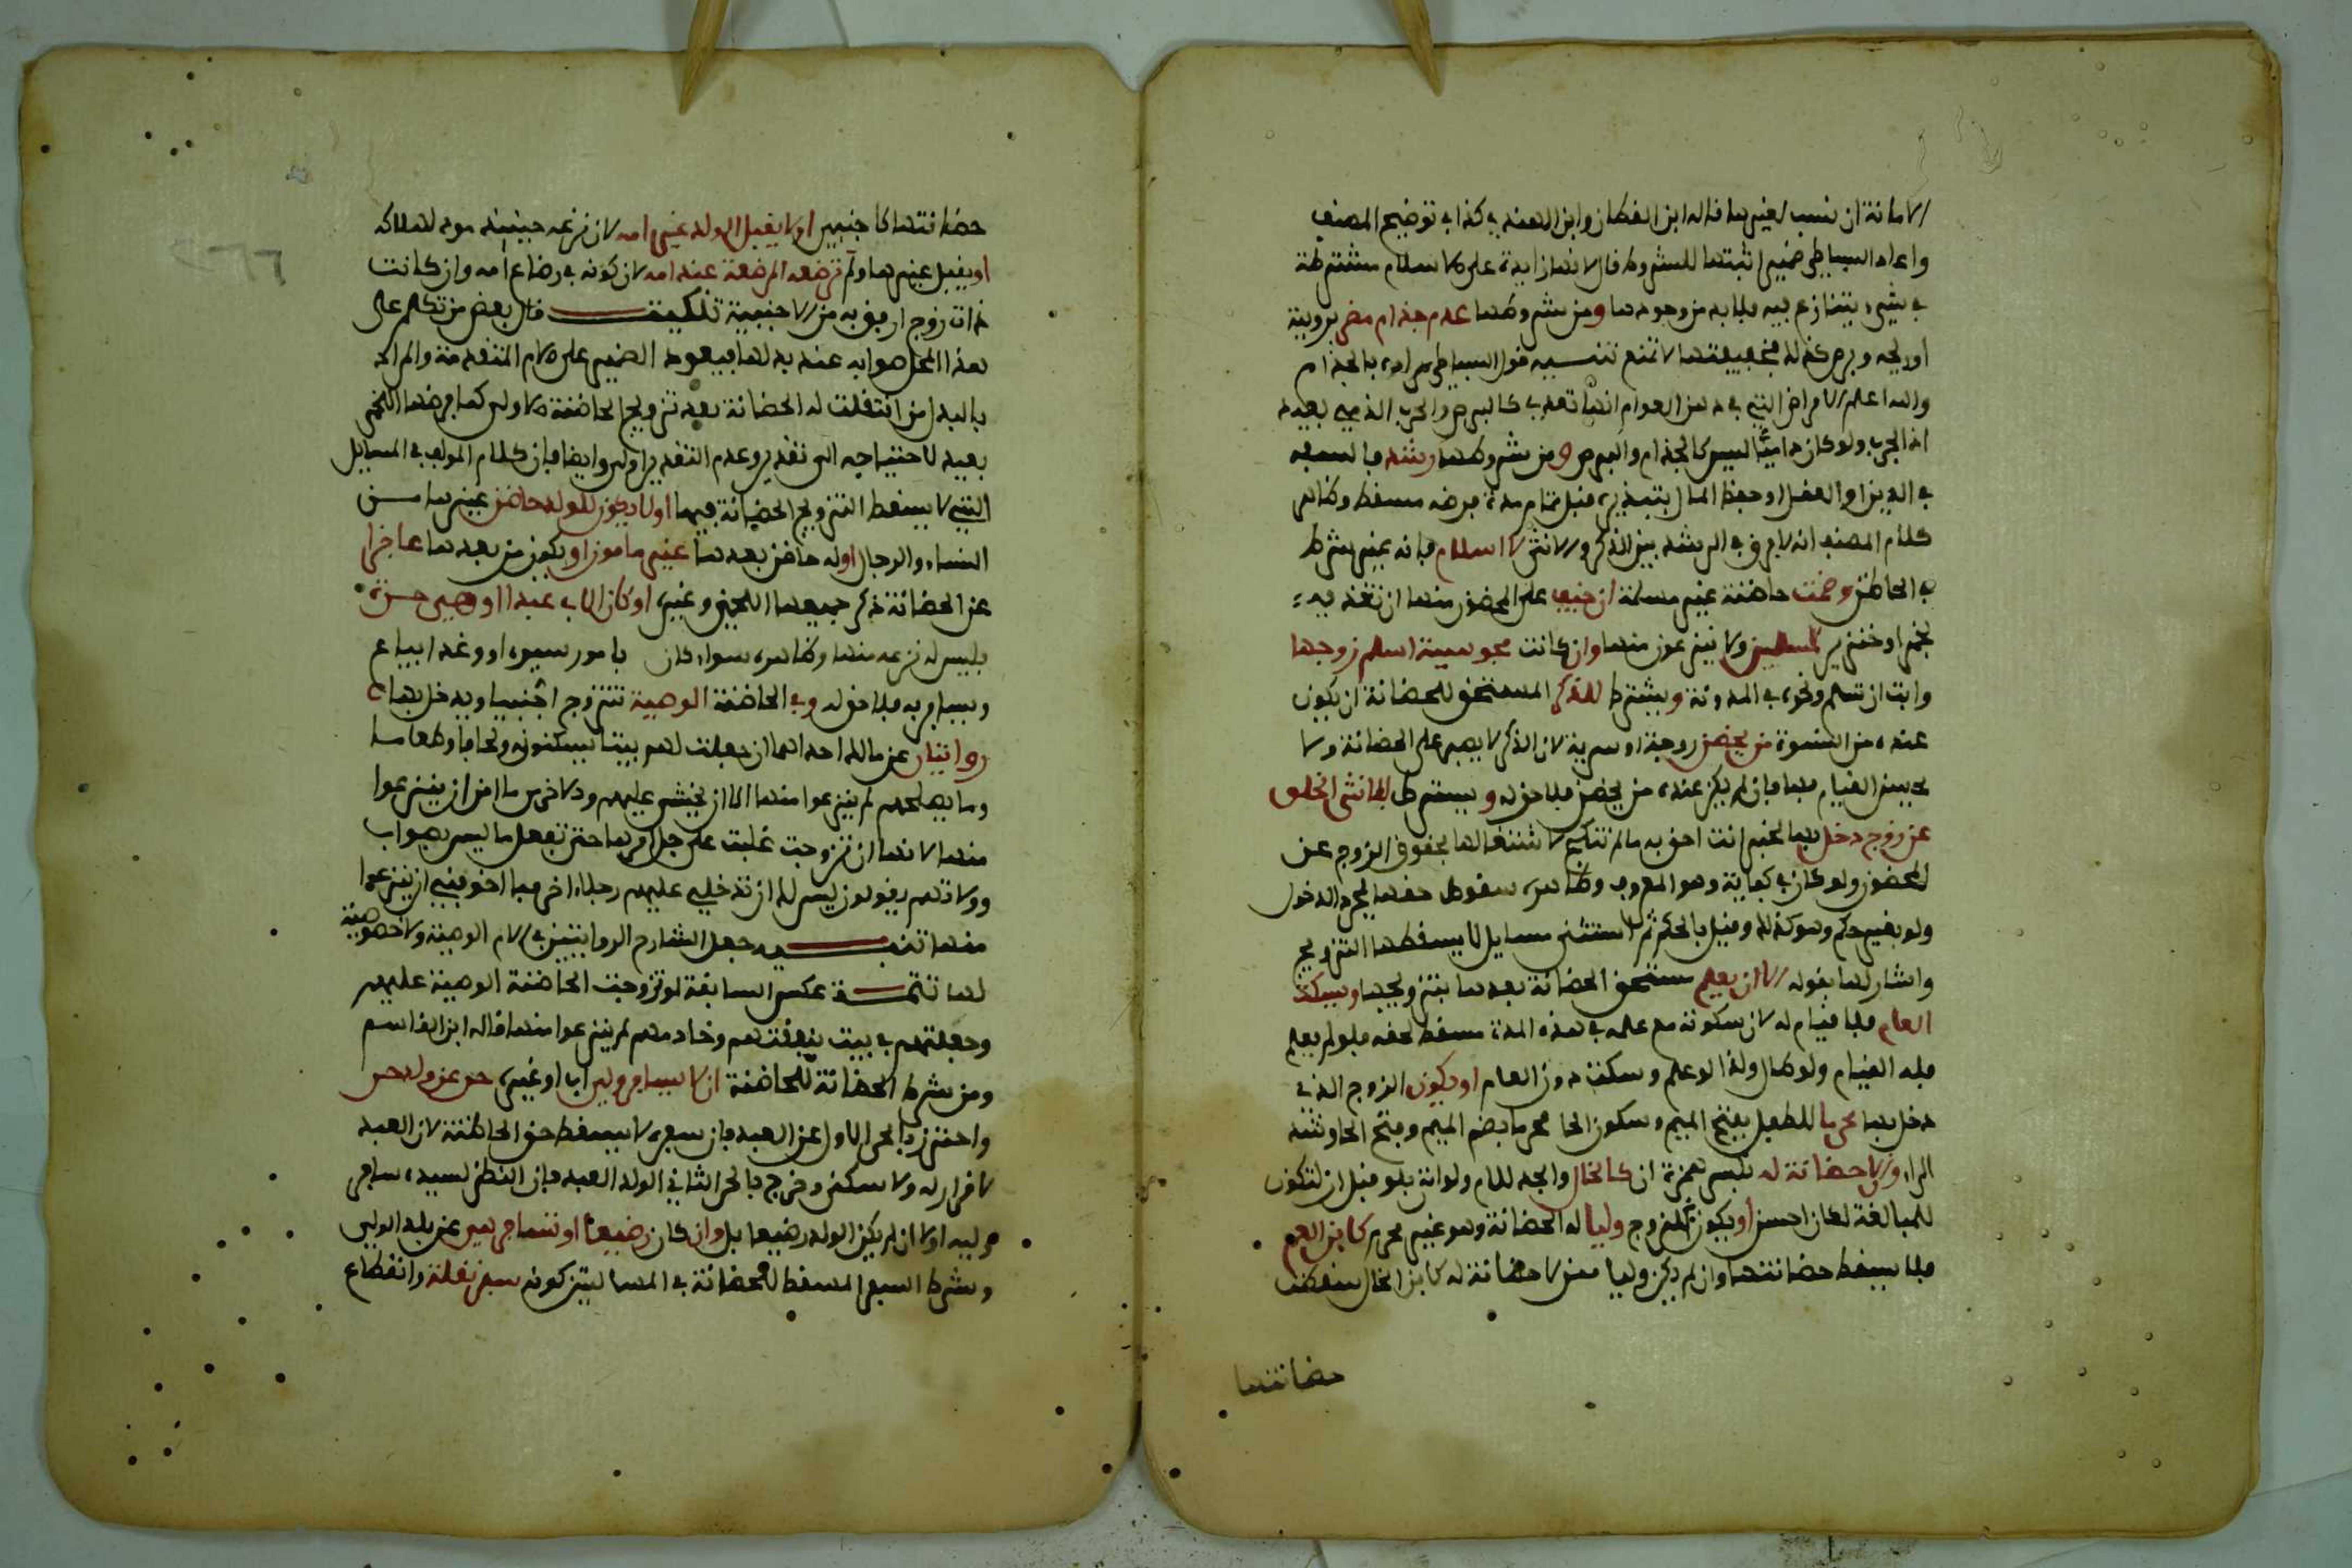 الامانة ان نسب لغيرها قاله ابن القطان وابن الهندي كذا في توضيح المصنف
واعاد البساطي ضمير اثبتها للشروط قال لانها زايدة على الاسلام مشترطة
في شيء يتنازع فيه فلا بد من وجودها ومن شروطها عدم جذام مضر بروية
او ريحه وبرص كذلك فخفيفهما لا تمنع تنبيه قول البساطي مراده بالجذام
والله اعلم الامراض التي في ذهن العوام انها تعدي كالبرص والجرب الذميم بعيد
اذ الجرب ولو كان داميا ليس كالجذام والبرص ومن شروطها رشد فالسفه
في الدين او العقل او حفظ المال بتبذيره قبل تمام مدة فرضه مسقط وظاهر
كلام المصنف انه لا فرق في الرشد بين الذكر والانثى لا اسلام فانه غير شرط
في الحاضن وضمت حاضنة غير مسلمة ان خيف على المحضون منها ان تغذيه
بخمر او خنزير لمسلمين ولا ينزعون منها وان كانت مجوسية اسلم زوجها
وابت ان تسلم ونحوه في المدونة ويشترط للذكر المستحق للحضانة ان يكون
عنده من النسوة من يحضن زوجة او سرية لان الذكر لا يصبر على الحضانة ولا
يحسن القيام بها فان لم يكن عنده من يحضن فلا حق له ويشترط للانثى الخلو
عن زوج دخل بها لخبر انت احق به ما لم تنكحي لاشتغالها بحقوق الزوج عن
المحضون ولو كان في كفاية وهو المعروف وظاهره سقوط حقها بمجرد الدخول
ولو بغير حكم وهو كذلك وقيل بالحكم ثم استثنى مسايل لا يسقطها التزويج
واشار لها بقوله الا ان يعلم مستحق الحضانة بعدها بتزويجها ويسكت
العام فلا قيام له لان سكوته مع علمه في هذه المدة مسقط لحقه فلو لم يعلم
فله القيام ولو طال وكذا لو علم وسكت دون العام او يكون الزوج الذي
دخل بها محرما للطفل بفتح الميم وسكون الحا محرما بضم الميم وفتح الحا وشد
الراء وان لا حضانة له بكسر همزة ان كالخال والجد للام ولو اتى بلو قبل ان لتكون
للمبالغة لكان احسن او يكون المتزوج وليا له الحضانة وهو غير محرم كابن العم
فلا يسقط حضانتها وان لم يكن وليا ممن لا حضانة له كابن الخال سقطت
حضانتها
حضانتها كاجنبي او لا يقبل الولد غير امه لان نزعه حينئذ مود لهلاكه
او يقبل غيرها ولم ترضعه المرضعة عند امه لان كونه في رضاع امه وان كانت
ذات زوج ارفق به من الاجنبية تنكيت قال بعض من تكلم على
هذا المحل صوابه عند بدلها فيعود الضمير على الام المتقدمة والمراد
بالبدل من انتقلت له الحضانة بعد تزويج الحاضنة الاولى كما فرضها اللخمي
بعيد لاحتياجه الى تقدير وعدم التقدير اولى وايضا فان كلام المولف في المسايل
التي لا يسقط التزويج الحضانة فيها او لا يكون للولد حاضن غيرها من
النساء والرجال او له حاضن بعدها غير مامون او يكون من بعدها عاجزا
عن الحضانة ذكر جميعها اللخمي وغيره او كان الاب عبدا او هي حرة
فليس له نزعه منها وظاهره سواء كان بامور سيده او وغدا يباع
ويسافر به فلا حق له وفي الحاضنة الوصية تتزوج اجنبيا ويدخل بها
روايتان عن مالك احداهما ان جعلت لهم بيتا يسكنونه ولحافا وطعاما
وما يصلحهم لم ينزعوا منها الا ان يخشى عليهم والاخرى ما امن ان ينزعوا
منها لانها ان تزوجت غلبت على جل امرها حتى تفعل ما ليس بصواب
وولاتهم يقولون ليس لك ان تدخلي عليهم رجلا اخر فما اخوفني ان ينزعوا
منها تنبيه جعل الشارح الروايتين في الام الوصية ولا خصوصية
لها تتمة عكس السابقة لو تزوجت الحاضنة الوصية عليهم
وجعلتهم في بيت بنفقتهم وخادمهم لم ينزعوا منها قاله ابن القاسم
ومن شرط الحضانة للحاضنة ان لا يسافر ولي اب او غيره حر عن ولد حر
واحترز بالحر الاول عن العبد فان سفره لا يسقط حق الحاضنة لان العبد
لا قرار له ولا سكنى وخرج بالحر الثاني الولد العبد فان النظر لسيده سافر
وليه او لا ان لم يكن الولد رضيعا بل وان كان رضيعا او تسافر هي عن بلد الولي
وشرط السفر المسقط للحضانة في المسالتين كونه سفر نقلة وانقطاع